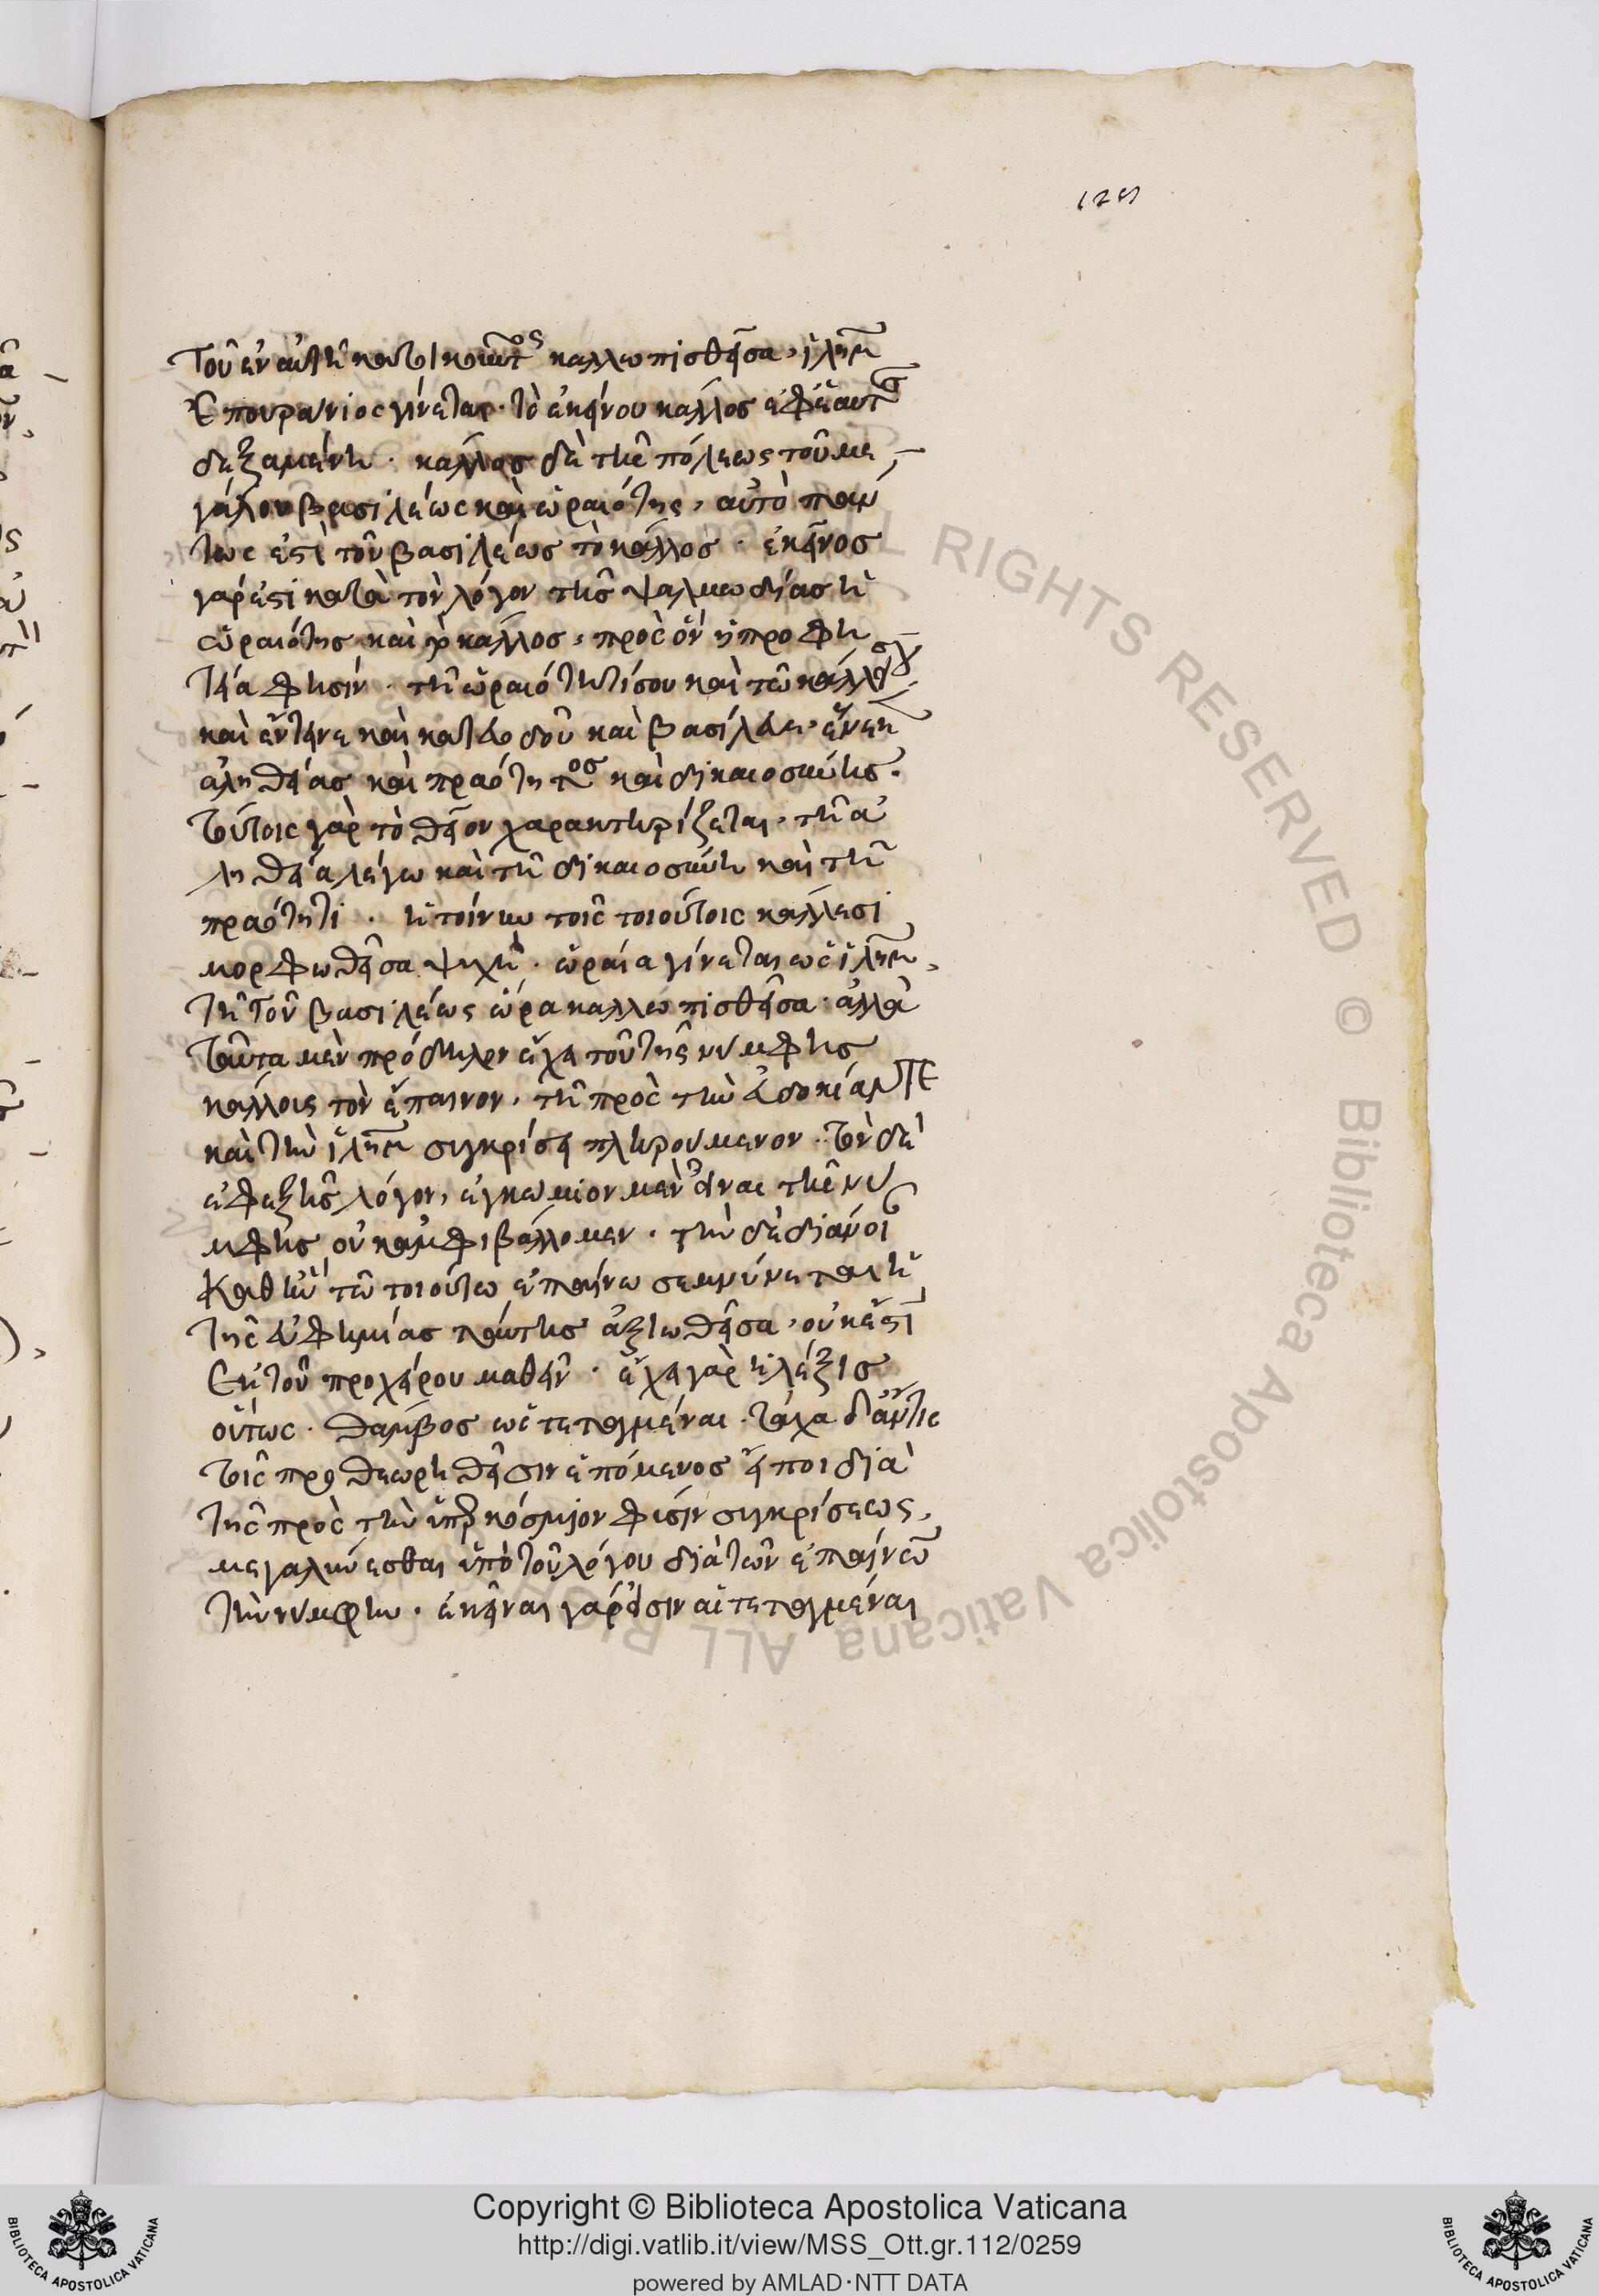 125
τοῦ ἐν αὐτῆ κατοικοῦντος καλλωπισθεῖσα, ἱλημ
ἐπουράνιος γίνεται· τὸ ἐκείνου κάλλος ἐφ ἑαυτῆς
δεξαμένη. κάλλος δὲ τῆς πόλεως τοῦ με
γάλου βασιλέως καὶ ὡραιότης, αὐτὸ πάν
τως ἐστὶ τοῦ βασιλέως τὸ κάλλος. ἐκεῖνος
γάρ ἐστι κατὰ τὸν λόγον τῆς ψαλμωδίας ἡ
ὡραιότης καὶ τὸ κάλλος, πρὸς ὃν ἡ προφη
τεία φησίν. τῆ ὡραιότητί σου καὶ τῶ κάλλει σου
καὶ ἔντεινε καὶ κατευοδοῦ καὶ βασίλευε, ἕνεκεν
ἀληθείας καὶ πραότητος καὶ δικαιοσύνης.
τούτοις γὰρ τὸ θεῖον χαρακτηρίζεται, τῆ ἀ
ληθεία λέγω καὶ τῆ δικαιοσύνη καὶ τῆ
πραότητι. ἡ τοίνυν τοῖς τοιούτοις κάλλεσι
μορφωθεῖσα ψυχὴ. ὡραία γίνεται ὡς ἱλημ,
τῆ τοῦ βασιλέως ὥρα καλλωπισθεῖσα. ἀλλὰ
ταῦτα μὲν πρόδηλον ἔχει τοῦ τῆς νύμφης
κάλλους τὸν ἔπαινον, τῆ πρὸς τὴν εὐδοκίαν τε
καὶ τὴν ἱλημ συγκρίσει πληρούμενον. τὸν δὲ
ἐφεξῆς λόγον, ἐγκώμιον μὲν εἶναι τῆς νύ
μφης οὐκ ἀμφιβάλλομεν. τὴν δὲ διάνοι
καθ ἣν τῶ τοιούτω ἐπαίνω σεμνύνεται ἡ
τῆς εὐφημίας ταύτης ἀξιωθεῖσα, οὐκ ἔστι
ἐκ τοῦ προχείρου μαθεῖν. ἔχει γὰρ ἡ λέξις
οὕτως. θάμβος ὡς τεταγμέναι. τάχα δ ἄν τις
τοῖς προθεωρηθεῖσιν ἑπόμενος εἴποι διὰ
τῆς πρὸς τὴν ὑπερκόσμιον φύσιν συγκρίσεως,
μεγαλύνεσθαι ὑπὸ τοῦ λόγου διὰ τῶν ἐπαίνων
τὴν νύμφην. ἐκεῖναι γάρ εἰσιν αἱ τεταγμέναι
RIGHTS RESERVED © Biblioteca Apostolica Vaticana ALL
Copyright © Biblioteca Apostolica Vaticana
http://digi.vatlib.it/view/MSS_Ott.gr.112/0259
powered by AMLAD·NTT DATA
BIBLIOTECA APOSTOLICA VATICANA
BIBLIOTECA APOSTOLICA VATICANA